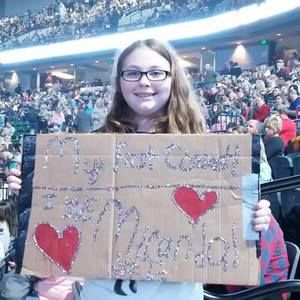 My first Concert!
I ♥
Miranda!